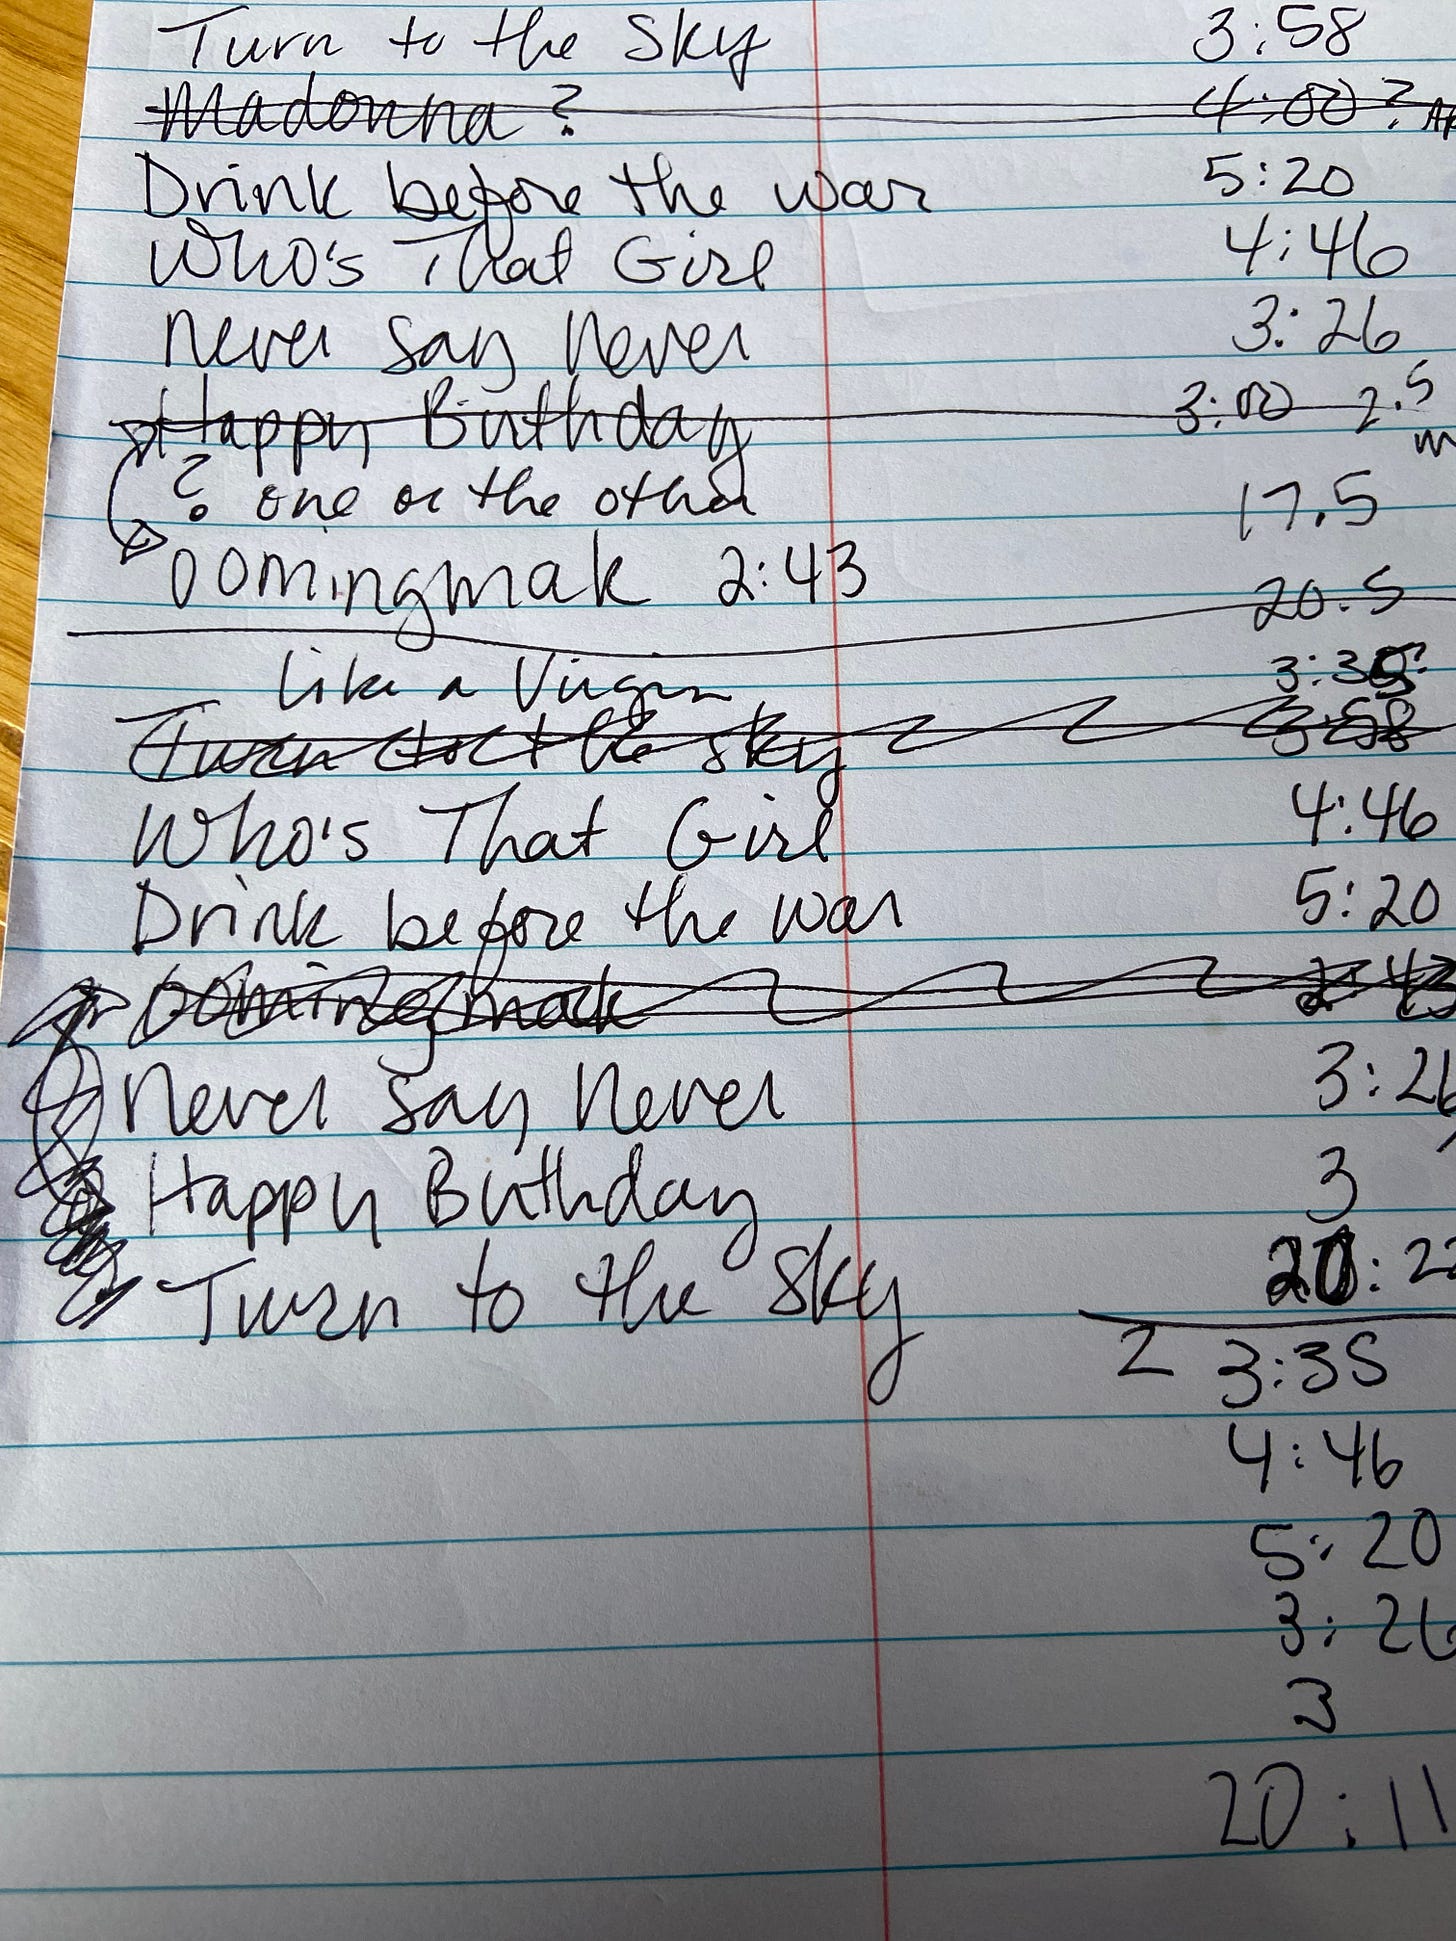 Turn to the Sky 3:58
Madonna ? 4:00 ?
Drink before the war 5:20
Who's That Girl 4:46
Never say Never 3:26
Happy Birthday 3:00 2.5
? one or the other 17.5
Oomingmak 2:43
20.5
Like a Virgin 3:35
Turn to the sky 3:58
Who's That Girl 4:46
Drink before the war 5:20
Oomingmack 2:43
Never say Never 3:26
Happy Birthday 3
Turn to the Sky
2 3:35
4:46
5:20
3:26
3
20:11